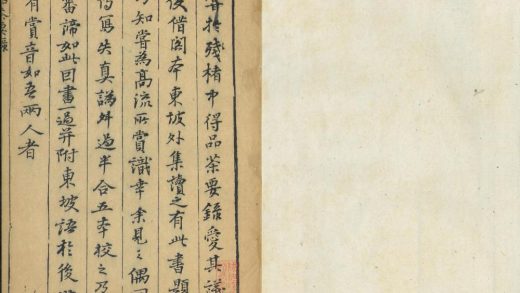 嘗於殘楮中得品茶要錄愛其議
後借閣本東坡外集讀之有此書題
知嘗為高流所賞識幸余見之偶同
傳寫失真譌舛過半合五本校之乃
審諦如此因書一過并附東坡語於後
有賞音如吾兩人者